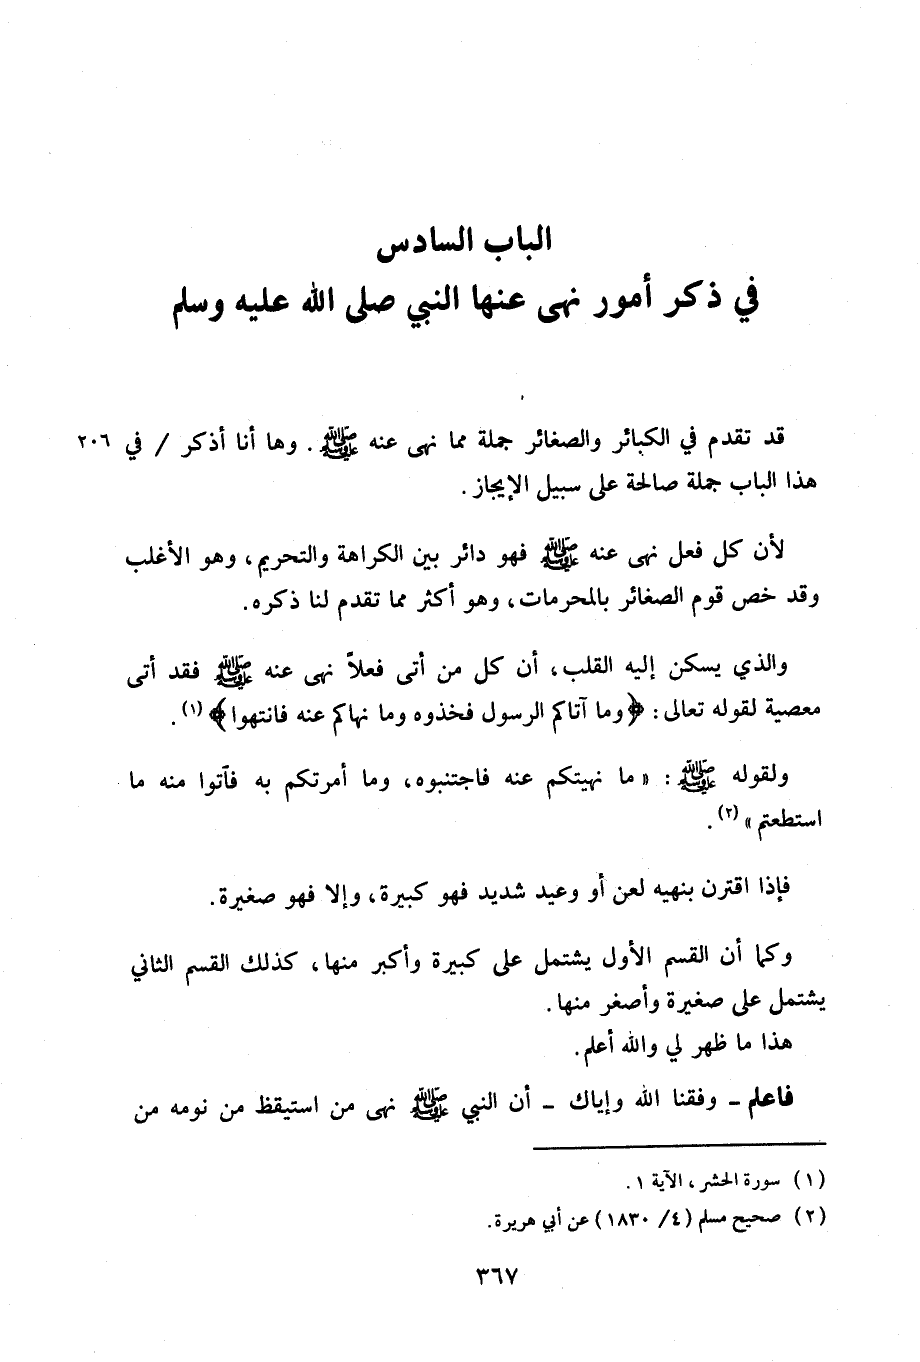 الباب السادس
في ذكر أمور نهى عنها النبي صلى الله عليه وسلم
قد تقدم في الكبائر والصغائر جملة مما نهى عنه ﷺ. وها أنا أذكر / في ٢٠٦
هذا الباب جملة صالحة على سبيل الإيجاز.
لأن كل فعل نهى عنه ﷺ فهو دائر بين الكراهة والتحريم، وهو الأغلب
وقد خص قوم الصغائر بالمحرمات، وهو أكثر مما تقدم لنا ذكره.
والذي يسكن إليه القلب، أن كل من أتى فعلاً نهى عنه ﷺ فقد أتى
معصية لقوله تعالى: ﴿وما آتاكم الرسول فخذوه وما نهاكم عنه فانتهوا﴾ (١).
ولقوله ﷺ: «ما نهيتكم عنه فاجتنبوه، وما أمرتكم به فآتوا منه ما
استطعتم» (٢).
فإذا اقترن بنهيه لعن أو وعيد شديد فهو كبيرة، وإلا فهو صغيرة.
وكما أن القسم الأول يشتمل على كبيرة وأكبر منها، كذلك القسم الثاني
يشتمل على صغيرة وأصغر منها.
هذا ما ظهر لي والله أعلم.
فاعلم ـ وفقنا الله وإياك ـ أن النبي ﷺ نهى من استيقظ من نومه من
(١) سورة الحشر، الآية ١.
(٢) صحيح مسلم (٤/ ١٨٣٠) عن أبي هريرة.
٣٦٧